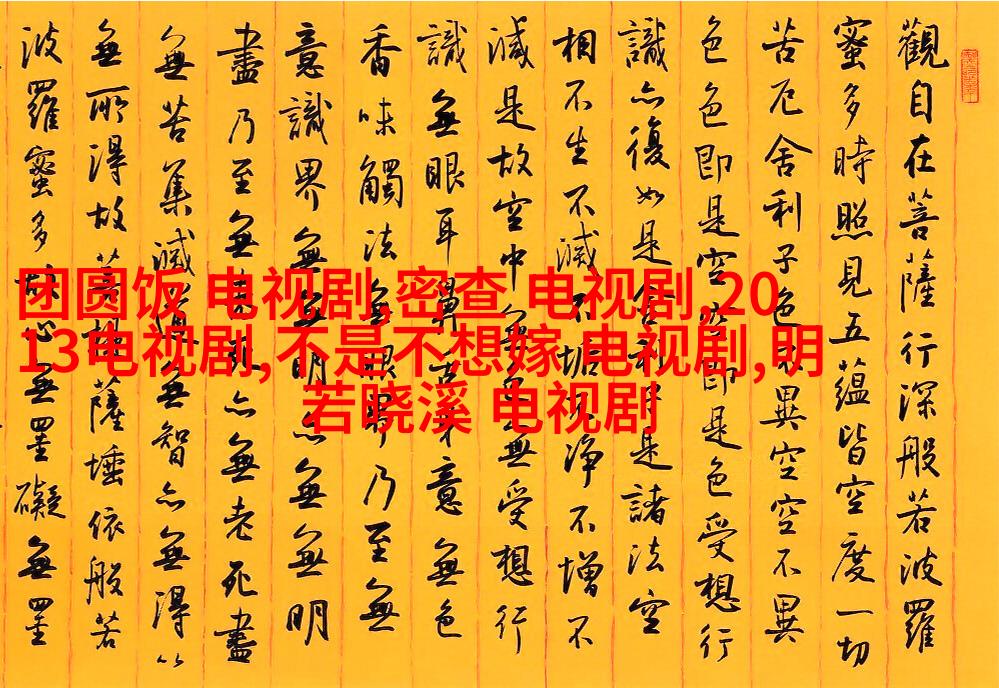 觀自在菩薩行深般若波羅
蜜多時照見五蘊皆空度一切
苦厄舍利子色不異空空不異
色色即是空空即是色受想行
識亦復如是舍利子是諸法空
相不生不滅不垢不淨不增不
減是故空中無色無受想行
識無眼耳鼻舌身意無色
香味觸法無眼界乃至無
意識界無無明亦無無明
盡乃至無老死亦無老死盡
無苦集滅道無智亦無得以
無所得故菩提薩埵依般若
波羅蜜多故心無罣礙無罣
团圆饭 电视剧,密查 电视剧,20
13电视剧,不是不想嫁 电视剧,明
若晓溪 电视剧